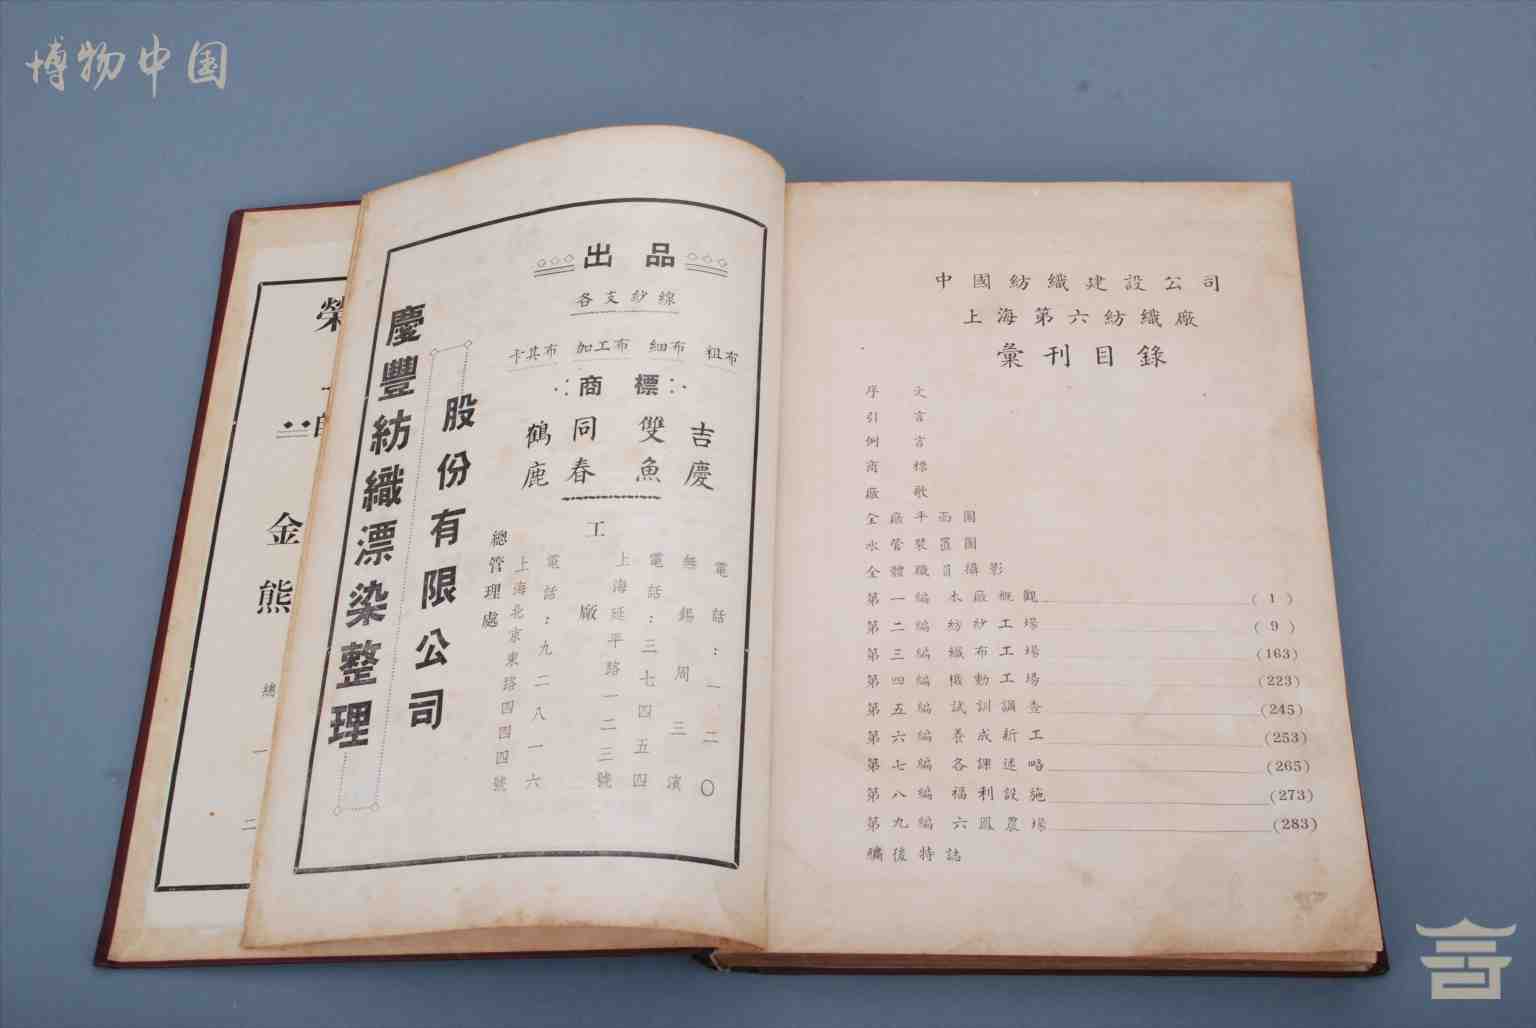 博物中国
榮
金
熊
總
一
二
出品
各支紗線
卡其布 加工布 細布 粗布
商標
吉慶
雙魚
同春
鶴鹿
慶豐紡織漂染整理
股份有限公司
總管理處
上海北京東路四四四號
電話：九二八一六
工廠
上海延平路一二三號
電話：三七四五四
無錫周三濱
電話：一二〇
中國紡織建設公司
上海第六紡織廠
彙刊目錄
序文
引言
例言
商標
廠歌
全廠平面圖
水管裝置圖
全體職員攝影
第一編 本廠概觀 (1)
第二編 紡紗工場 (9)
第三編 織布工場 (163)
第四編 機動工場 (223)
第五編 試訓調查 (245)
第六編 養成新工 (253)
第七編 各課述略 (265)
第八編 福利設施 (273)
第九編 六鳳農場 (283)
後特誌